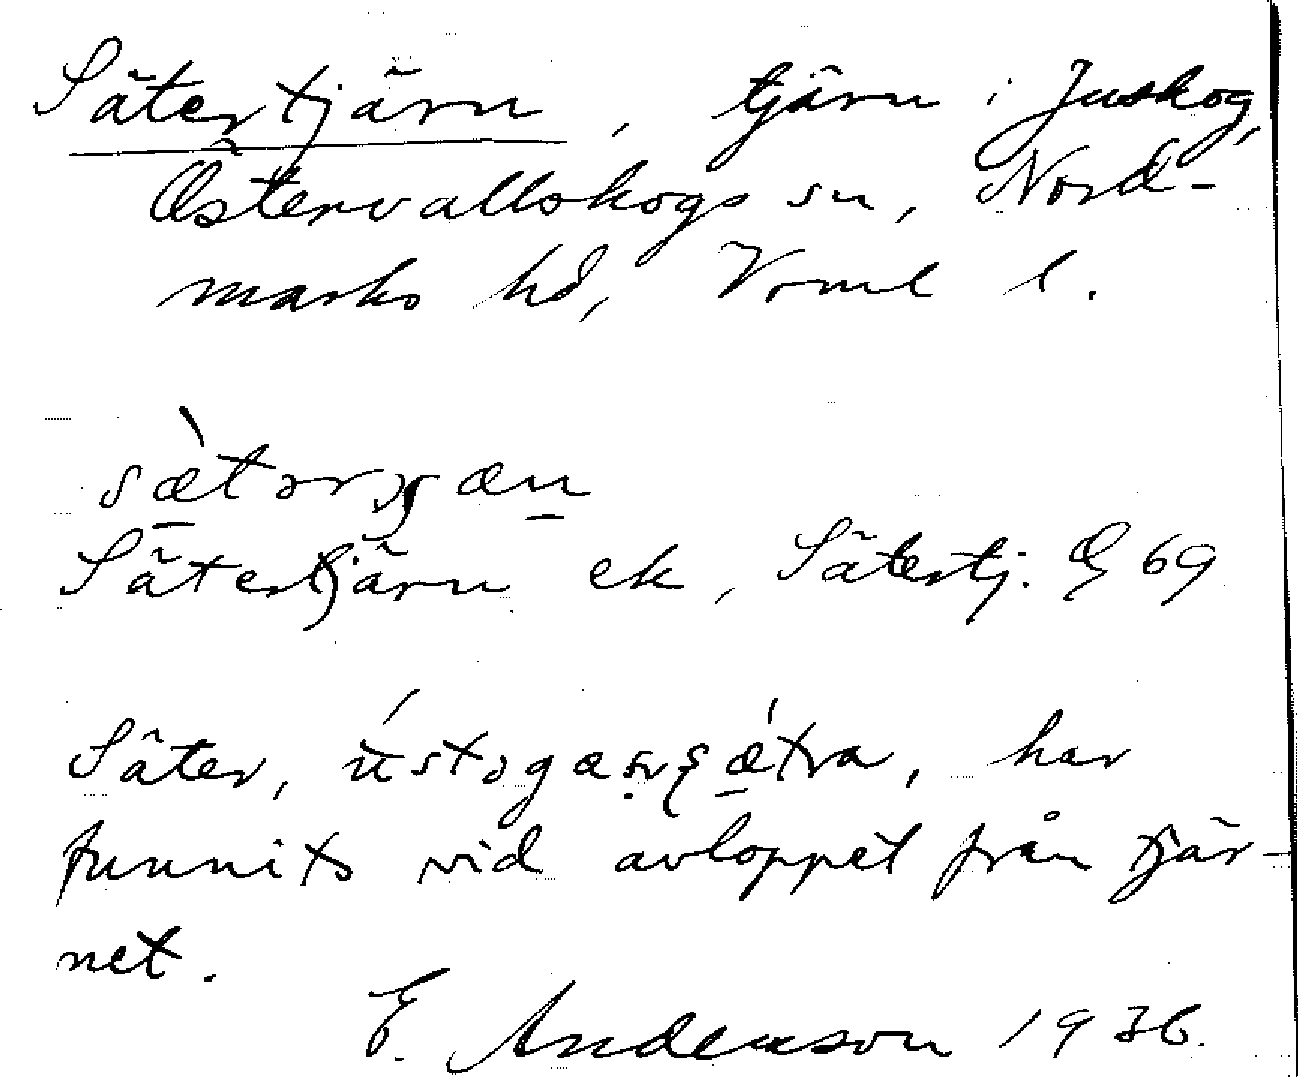 Sätertjärn, tjärn i Juskog,
Östervallskogs sn, Nord-
marks hd, Vrml l.
Sätertjärn ek, Sätertj. G 69
Säter, har
funnits vid avloppet från tjär-
net.
E. Anderson 1936.